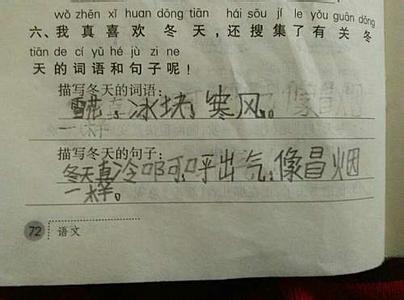 wǒ zhēn xǐ huan dōng tiān hái sōu jí le yǒu guān dōng
六、我真喜欢冬天,还搜集了有关冬
tiān de cí yǔ hé jù zi ne
天的词语和句子呢!
描写冬天的词语:
雪花,冰块,寒风。
描写冬天的句子:
冬天真冷啊,呼出气,像冒烟
一样。
72 语文